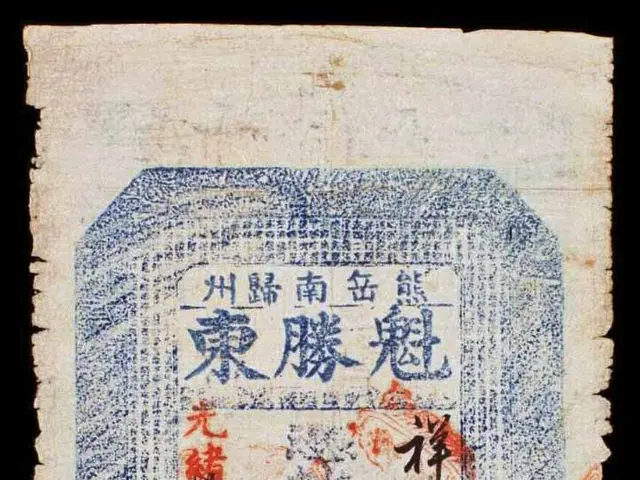 熊岳南歸州
魁勝東
祥
光緒